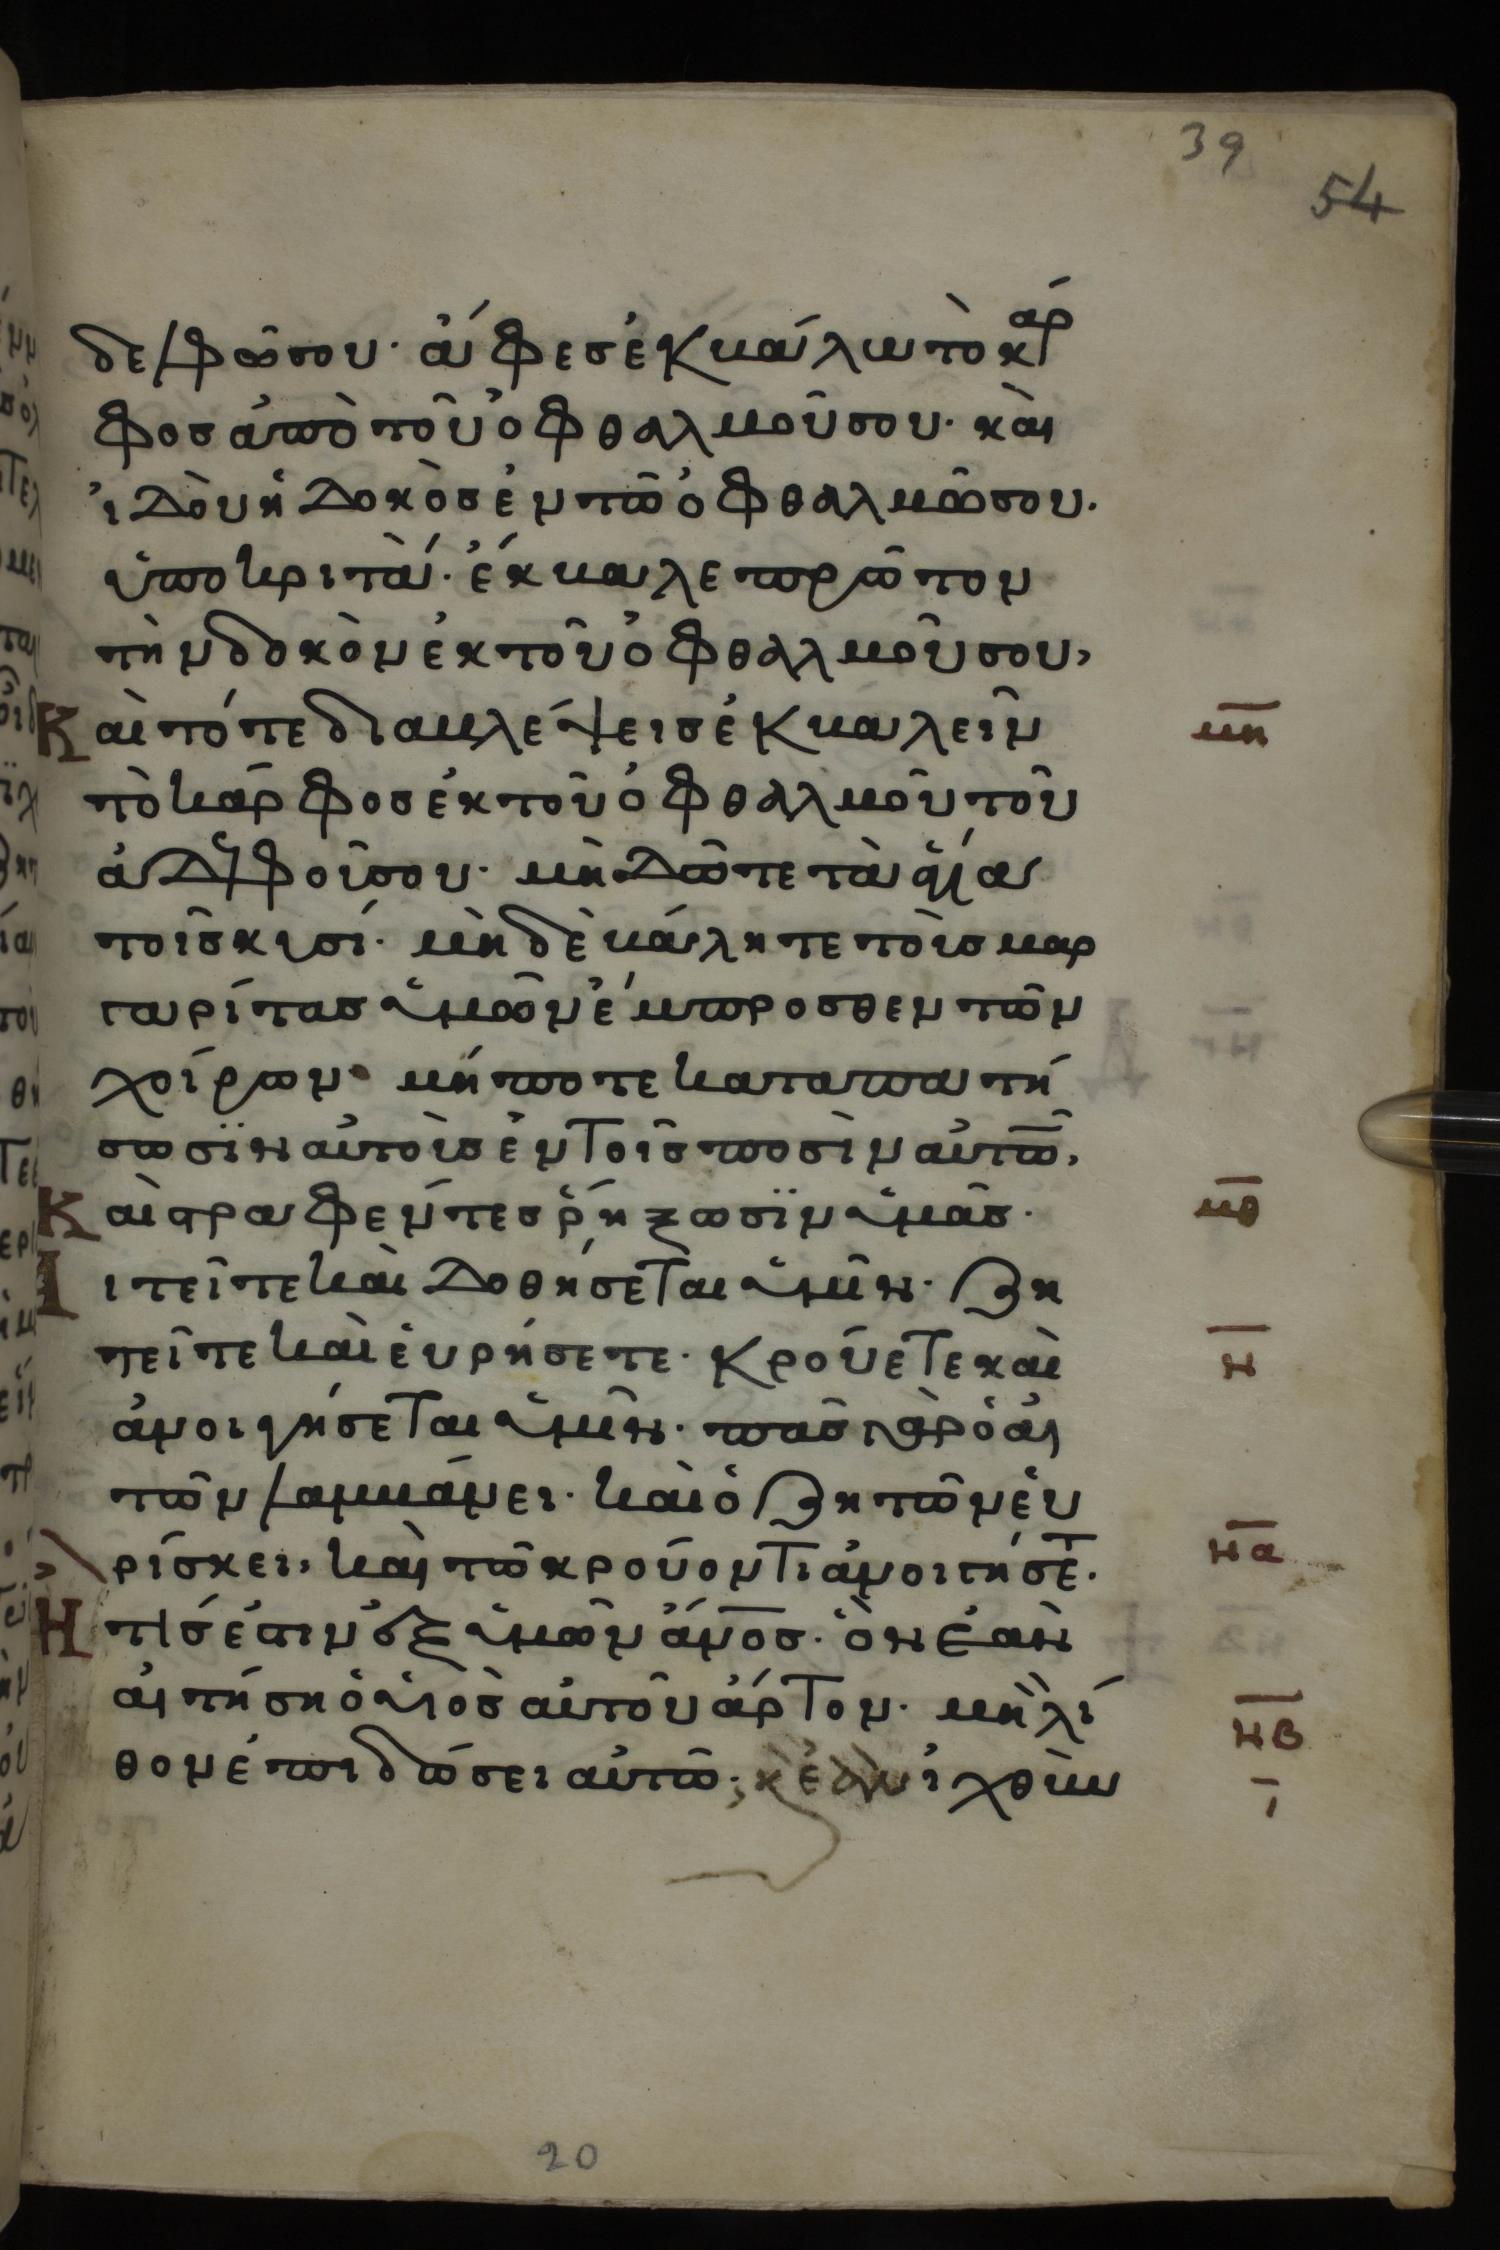 39
54
δελφῶ σου· ἄφες ἐκβάλω τὸ κάρ
φος ἀπὸ τοῦ ὀφθαλμοῦ σου· καὶ
ἰδοὺ ἡ δοκὸς ἐν τῶ ὀφθαλμῶ σου.
ὑποκριτά· ἔκβαλε πρῶτον
τὴν δοκὸν ἐκ τοῦ ὀφθαλμοῦ σου,
Καὶ τότε διαβλέψεις ἐκβαλεῖν
τὸ κάρφος ἐκ τοῦ ὀφθαλμοῦ τοῦ
ἀδελφοῦ σου· μὴ δῶτε τὰ ἅγια
τοῖς κυσί· μὴ δὲ βάλητε τοὺς μαρ
γαρίτας ὑμῶν ἔμπροσθεν τῶν
χοίρων· μήποτε καταπατή
σωσϊν αὐτοὺς ἐν τοῖς ποσὶν αὐτῶ,
Καὶ στραφέντες ῥήξωσϊν ὑμᾶς·
Αἰτεῖτε καὶ δοθήσεται ὑμῖν· ζη
τεῖτε καὶ εὑρήσετε· κρούετε καὶ
ἀνοιγήσεται ὑμῖν· πᾶς γὰρ ὁ αἰ
τῶν λαμβάνει· καὶ ὁ ζητῶν εὑ
ρίσκει, καὶ τῶ κρούοντι ἀνοιγήσετ·
Η τίς ἐστιν ἐξ ὑμῶν ἄν̅ο̅ς̅· ὃν ἐὰν
αἰτήση ὁ υἱὸς αὐτοῦ ἄρτον· μὴ λί
θον ἐπιδώσει αὐτῶ; κ ἐὰν ἰχθὺν
μη
μθ
ν
να
νβ
20